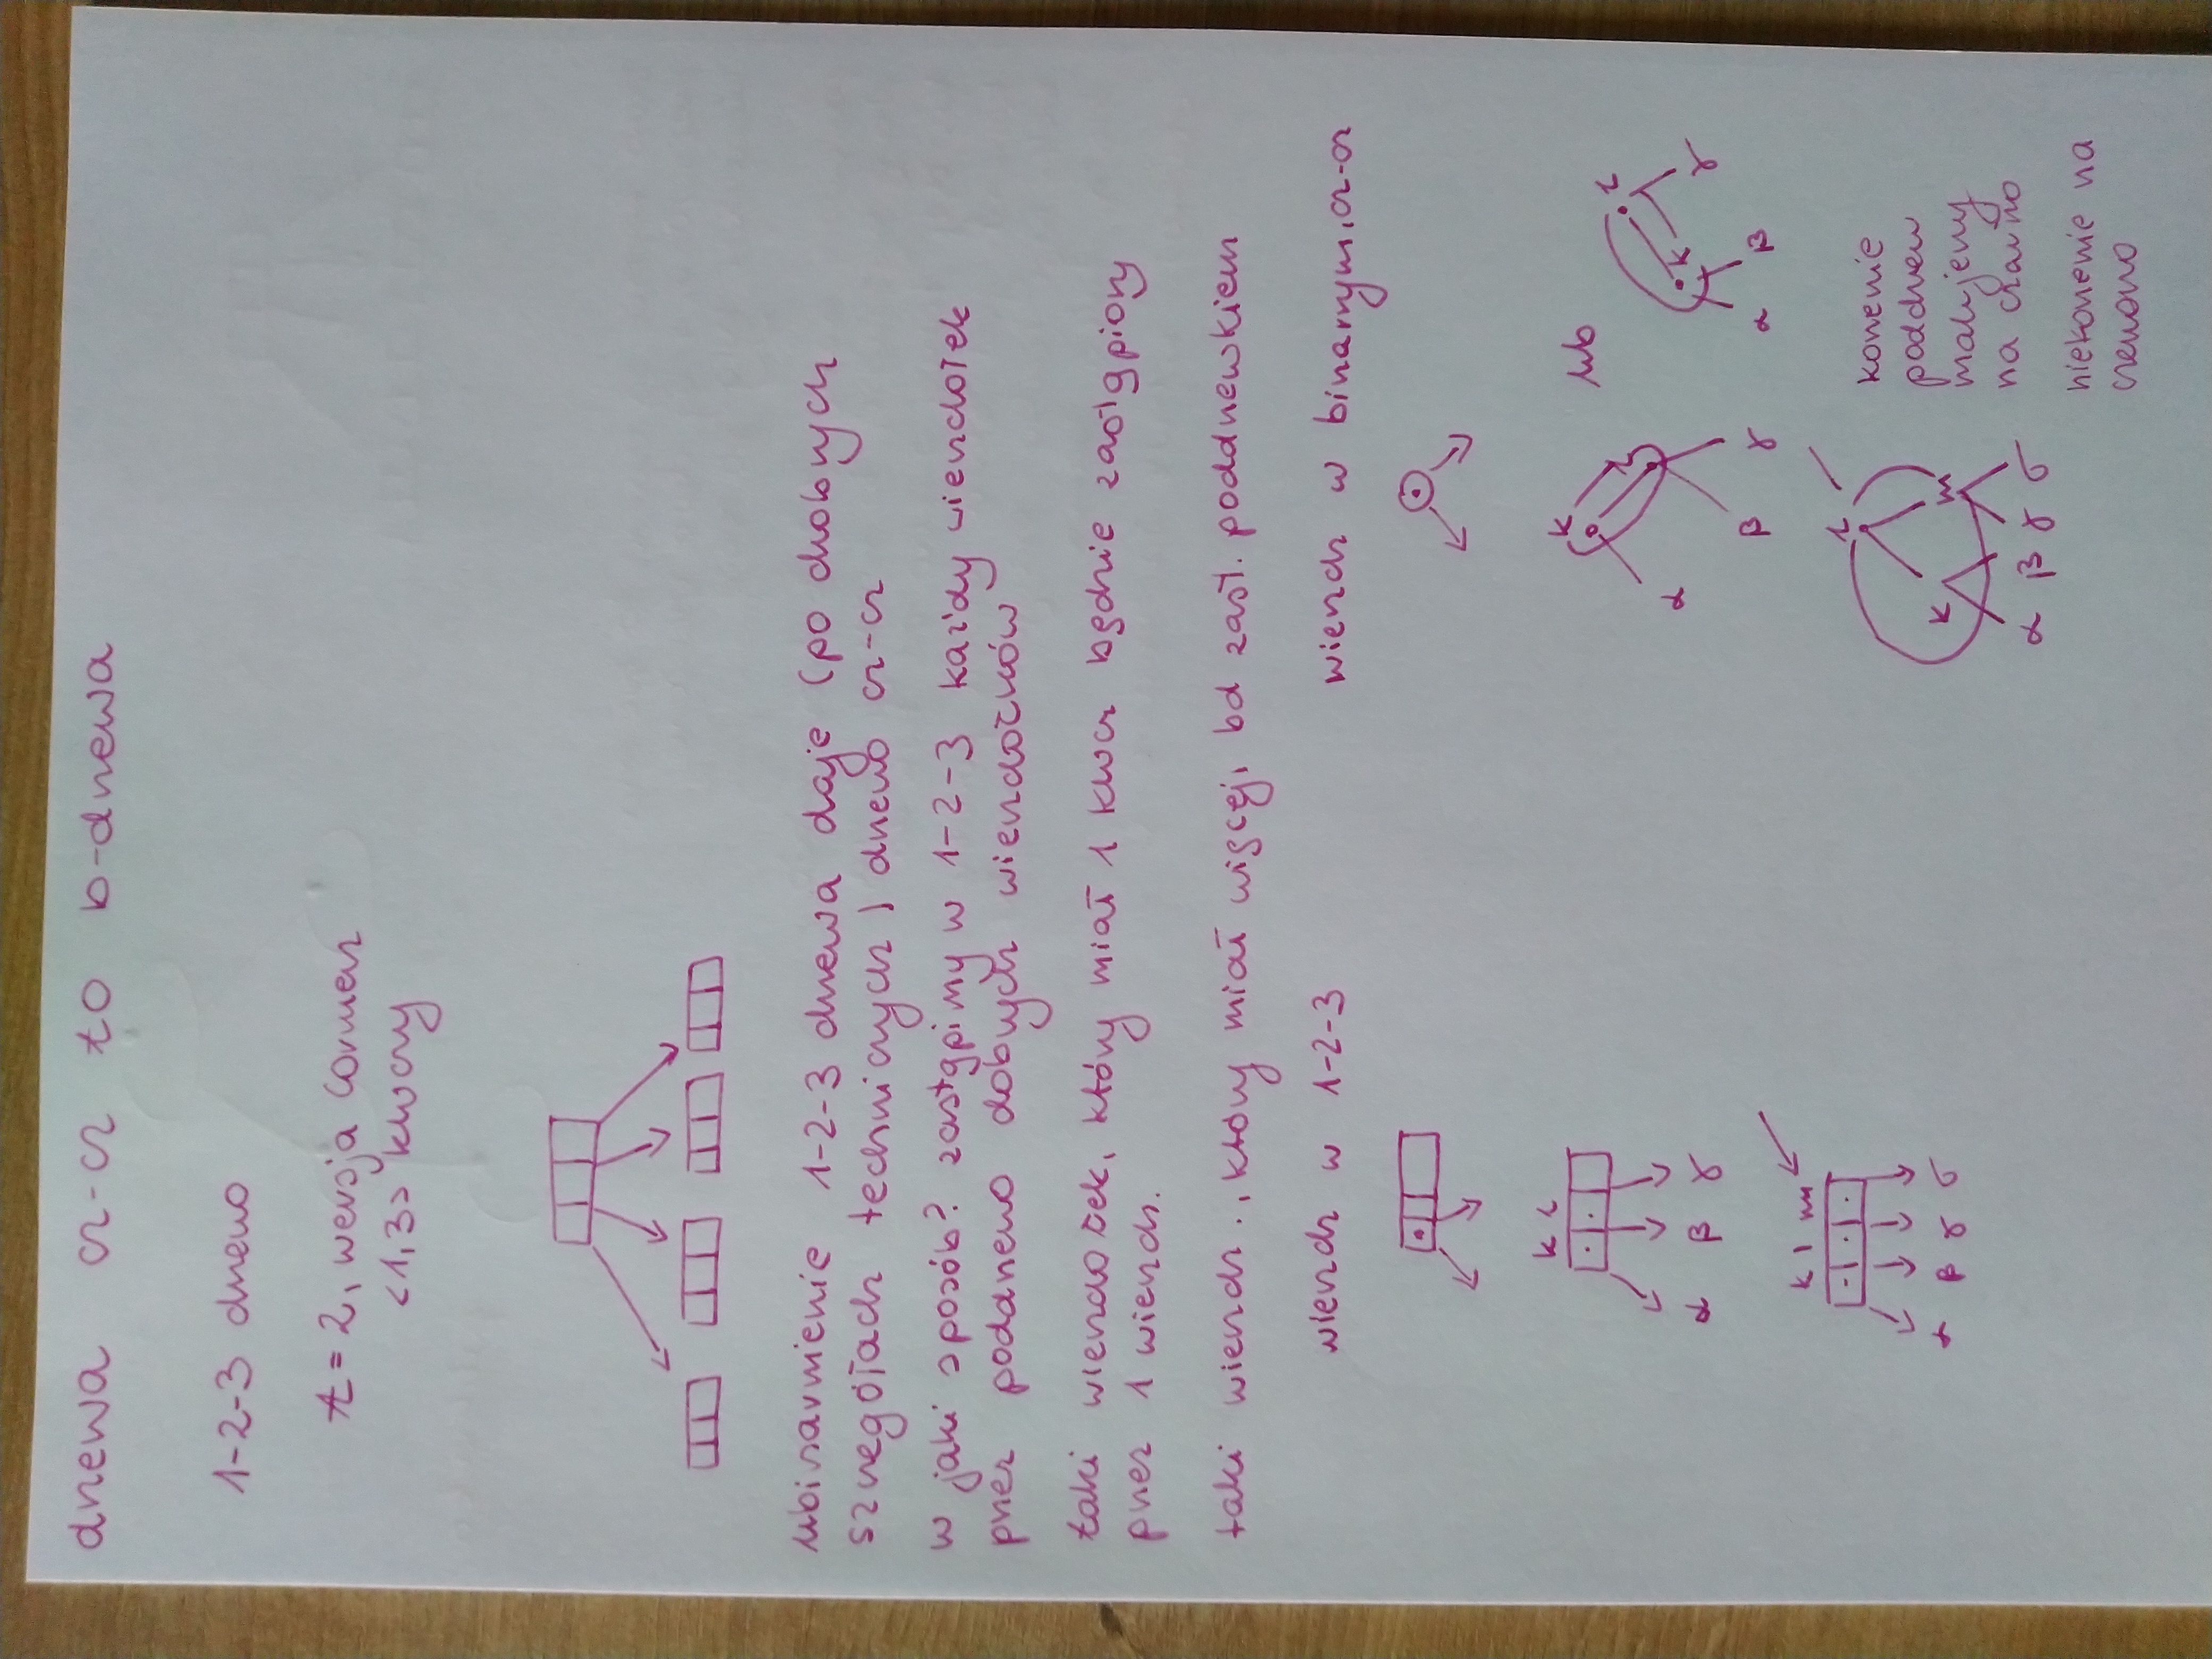 drzewa cz-cz to b-drzewa
1-2-3 drzewo
t = 2, wersja Cormen
<1,3> kluczy
ubinarnienie 1-2-3 drzewa daje (po drobnych
szczegółach technicznych) drzewo cz-cz
w jaki sposób? zastąpimy w 1-2-3 każdy wierzchołek
przez poddrzewo dobrych wierzchołków
taki wierzchołek, który miał 1 klucz będzie zastąpiony
przez 1 wierzch.
taki wierzch., który miał więcej, bd zast. poddrzewkiem
wierzch w 1-2-3
wierzch w binarnym, cz-cz
k l
α β γ
k
l
α
β γ
lub
l
k
γ
α β
k l m
α β γ σ
l
k m
α β γ σ
korzenie
poddrzew
malujemy
na czarno
niekorzenie na
czerwono